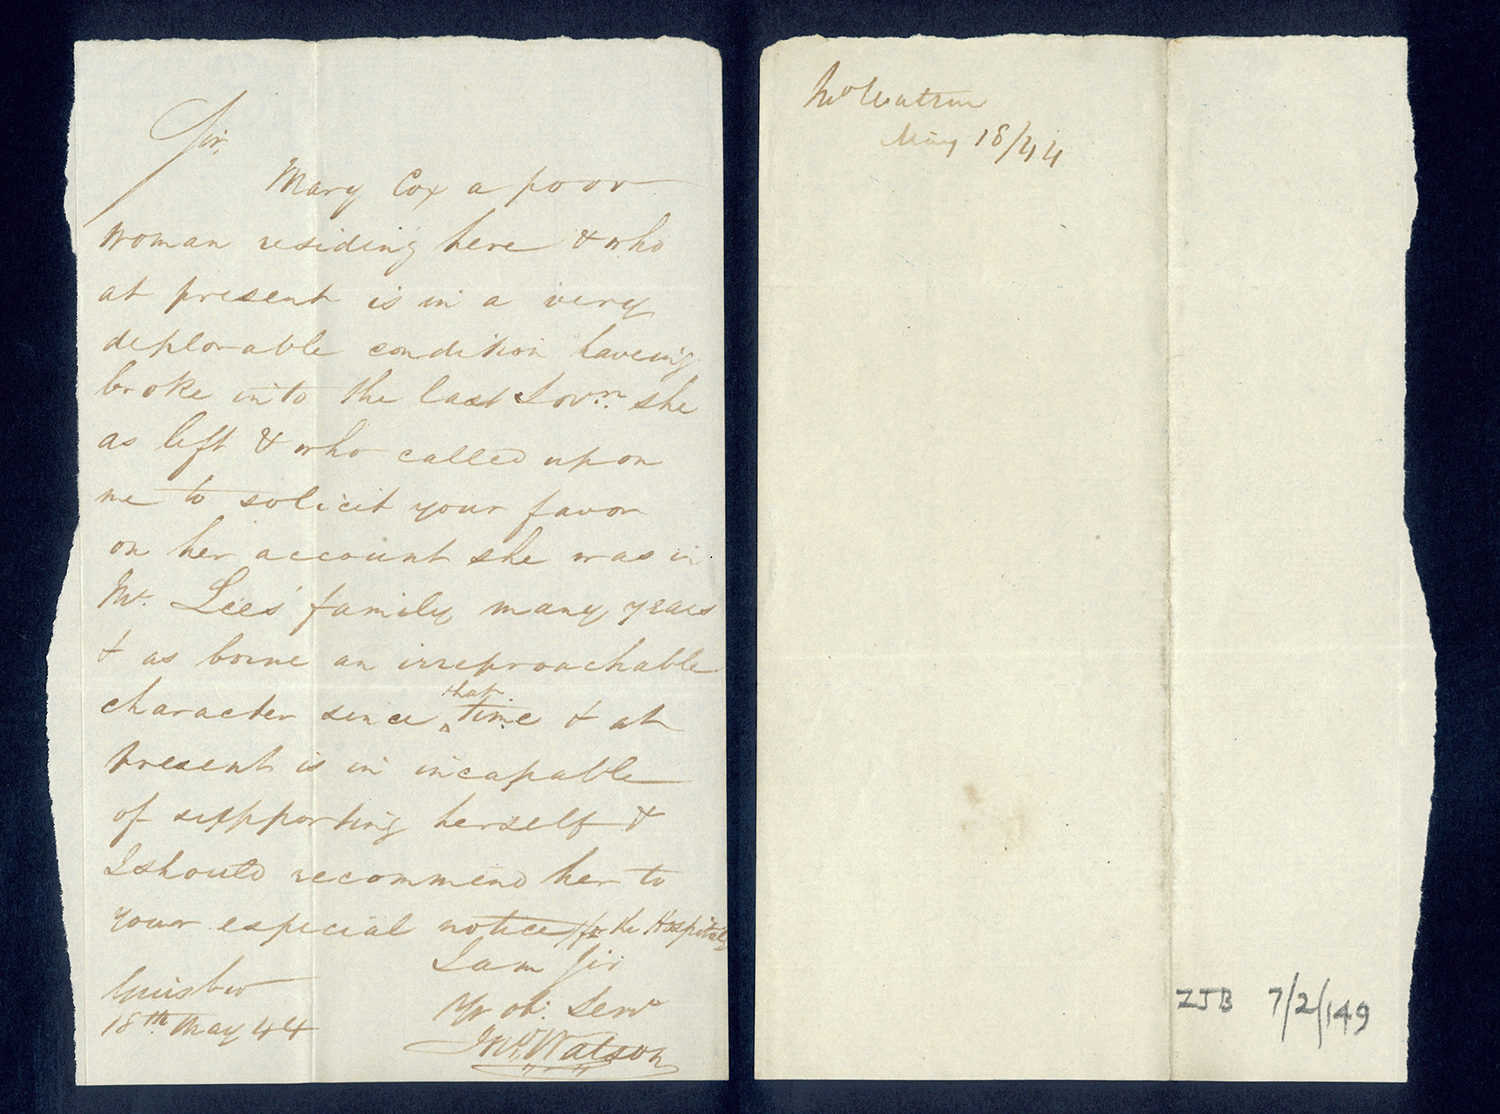 Sir,
Mary Cox a poor
woman residing here & who
at present is in a very
deplorable condition haveing
broke into the last Sovn. she
as left & who called upon
me to solicit your favor
on her account she was in
Mr. Lees' family many years
& as borne an irreproachable
character since ^that time & at
present is in incapable
of supporting herself &
I should recommend her to
your especial notice for the Hospital
I am Sir
Guisbro
Yr ob: Serv
18th May 44
Jno. Watson
Jno Watson
May 18/44
ZJB 7/2/149